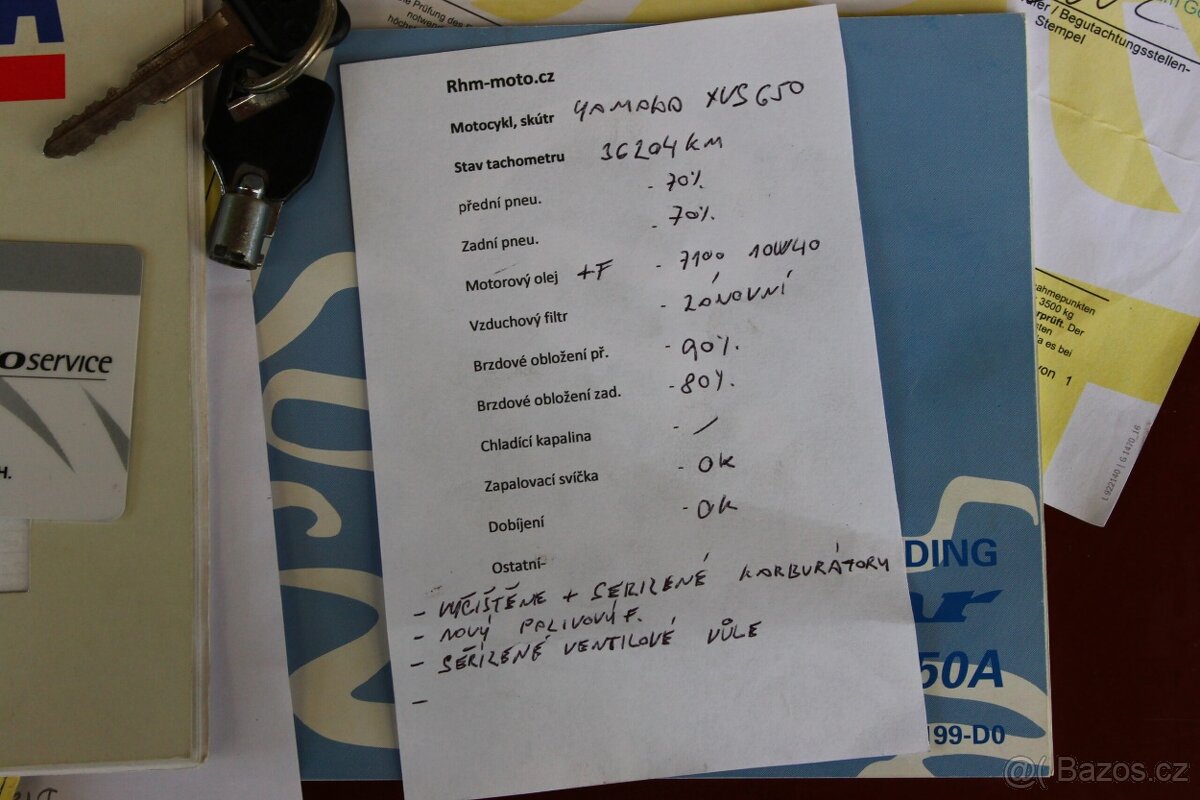 A
Rhm-moto.cz
Motocykl, skútr YAMAHA XVS650
Stav tachometru 36204 KM
přední pneu. - 70%
Zadní pneu. - 70%.
Motorový olej +F - 7100 10W40
Vzduchový filtr - ZÁNOVNÍ
Brzdové obložení př. - 90%.
Brzdové obložení zad. - 80%.
Chladící kapalina - /
Zapalovací svíčka - OK
Dobíjení - OK
Ostatní-
- VYČIŠTĚNE + SEŘIZENÉ KARBURÁTORY
- NOVÝ PALIVOVÝ F.
- SEŘIZENÉ VENTILOVÉ VŮLE
-
Oservice
H.
DING
ar
50A
199-D0
ne Prüfung des
notwen
höchst
üfer / Begutachtungsstellen-
Stempel
ahmepunkten
3500 kg
erprüft. Der
sten
ia es bei
von 1
L 922140 | G 1470_16
@( Bazos.cz